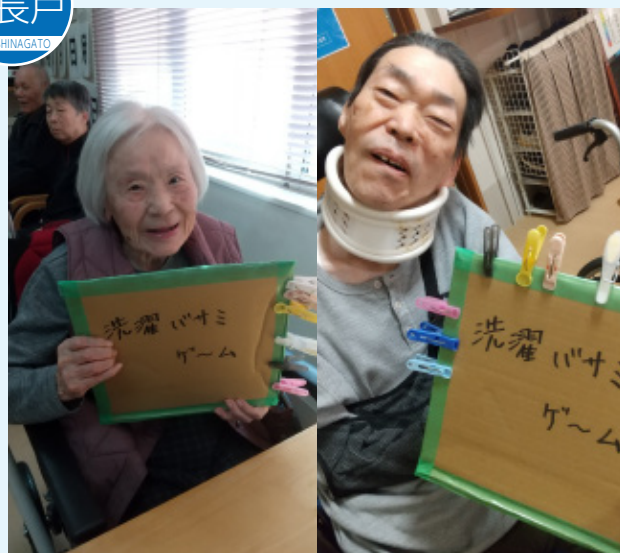 長戸
HINAGATO
洗濯バサミ
ゲーム
洗濯バサミ
ゲーム